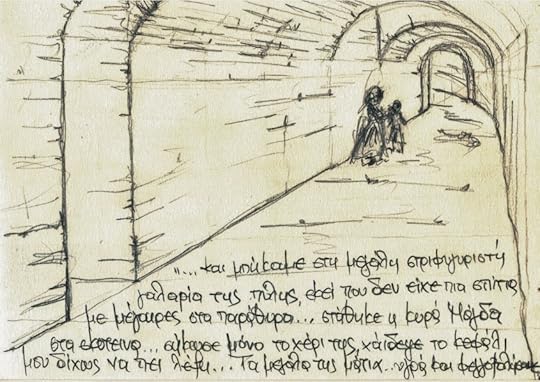 "... και μπήκαμε στη μεγάλη στριφιγυριστή
γαλαρία της πύλης, εκεί που δεν είχε πια σπίτια
με μέγαιρες στα παράθυρα... στάθηκε η κυρά Μάγδα
στα σκοτεινά... σήκωσε μόνο το χέρι της, χάιδεψε το κεφάλι
μου δίχως να πει λέξη... Τα μεγάλα της μάτια... υγρά και